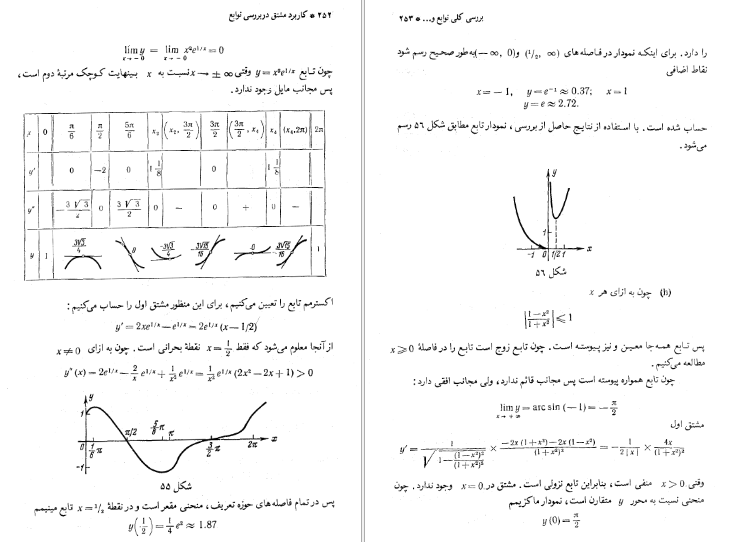 ۲۵۲ * کاربرد مشتق در بررسی توابع
lim y = lim x²e^{1/x} = 0
x→−0 x→−0
چون تابع y = x²e^{1/x} وقتی x → ±∞ نسبت به x بینهایت کوچک مرتبهٔ دوم است،
پس مجانب مایل وجود ندارد.
x 0 π/6 π/2 5π/6 x₃ (x₃, 3π/2) 3π/2 (3π/2, x₄) x₄ (x₄, 2π) 2π
y′ 0 −2 0 1 1/8 0 1 1/8
y″ −3√3/2 0 3√3/2 0 − 0 + 0 −
y 1 3√3/4 0 −3√3/4 −3√15/16 0 −3√15/16 1
اکسترمم تابع را تعیین می‌کنیم، برای این منظور مشتق اول را حساب می‌کنیم:
y′ = 2xe^{1/x} − e^{1/x} − 2e^{1/x} (x − 1/2)
از آنجا معلوم می‌شود که فقط x = 1/2 نقطهٔ بحرانی است. چون به ازای x ≠ 0
y″ (x) − 2e^{1/x} − 2/x e^{1/x} + 1/x² e^{1/x} = 1/x² e^{1/x} (2x² − 2x + 1) > 0
y
1
0 1/6 π π/2 5/6 π π 3/2 π 2π x
−1
شکل ۵۵
پس در تمام فاصله‌های حوزه تعریف، منحنی مقعر است و در نقطهٔ x = ۱/۲ تابع مینیمم
y(1/2) = 1/4 e² ≈ 1.87
بررسی کلی توابع و... * ۲۵۳
را دارد. برای اینکه نمودار در فاصله‌های (۱/۲, ∞) و (−∞, 0) به‌طور صحیح رسم شود
نقاط اضافی
x = −1, y = e⁻¹ ≈ 0.37; x = 1
y = e ≈ 2.72.
حساب شده است. با استفاده از نتایج حاصل از بررسی، نمودار تابع مطابق شکل ۵۶ رسم
می‌شود.
y
1
−1 0 1/2 1 x
شکل ۵۶
h) چون به ازای هر x
|1−x²/1+x²| ⩽ 1
پس تابع همه‌جا معین و نیز پیوسته است. چون تابع زوج است تابع را در فاصلهٔ x ⩾ 0
مطالعه می‌کنیم.
چون تابع همواره پیوسته است پس مجانب قائم ندارد، ولی مجانب افقی دارد:
lim y = arc sin (−1) = −π/2
x→+∞
مشتق اول
y′ = 1/√(1−(1−x²)²/(1+x²)²) × −2x (1+x²) −2x (1−x²)/(1+x²)² = −1/2|x| × 4x/(1+x²)²
وقتی x > 0 منفی است، بنابراین تابع نزولی است. مشتق در x = 0 وجود ندارد. چون
منحنی نسبت به محور y متقارن است، نمودار ماکزیمم
y (0) = π/2